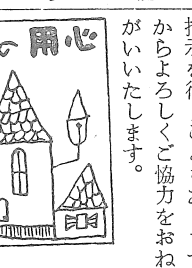 からよろしくご協力をおね
がいいたします。
用心